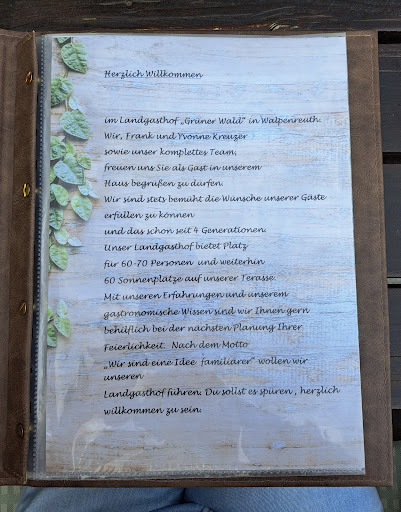 Herzlich Willkommen
im Landgasthof „Grüner Wald" in Walpenreuth.
Wir, Frank und Yvonne Kreuzer
sowie unser komplettes Team,
freuen uns Sie als Gast in unserem
Haus begrüßen zu dürfen.
Wir sind stets bemüht die Wünsche unserer Gäste
erfüllen zu können
und das schon seit 4 Generationen.
Unser Landgasthof bietet Platz
für 60-70 Personen und weiterhin
60 Sonnenplätze auf unserer Terasse.
Mit unseren Erfahrungen und unserem
gastronomische Wissen sind wir Ihnen gern
behilflich bei der nächsten Planung Ihrer
Feierlichkeit. Nach dem Motto
„Wir sind eine Idee familiärer" wollen wir
unseren
Landgasthof führen. Du sollst es spüren , herzlich
willkommen zu sein.